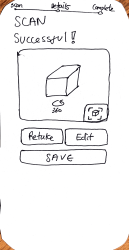 Scan Details Complete
SCAN
Successful!
360
Retake Edit
SAVE